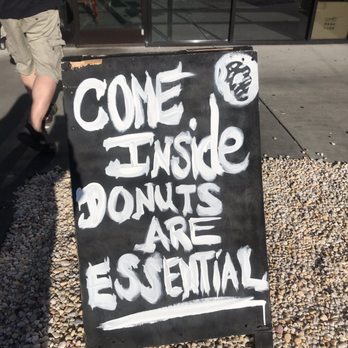 COME
INSide
DONUTS
ARE
ESSENTIAL